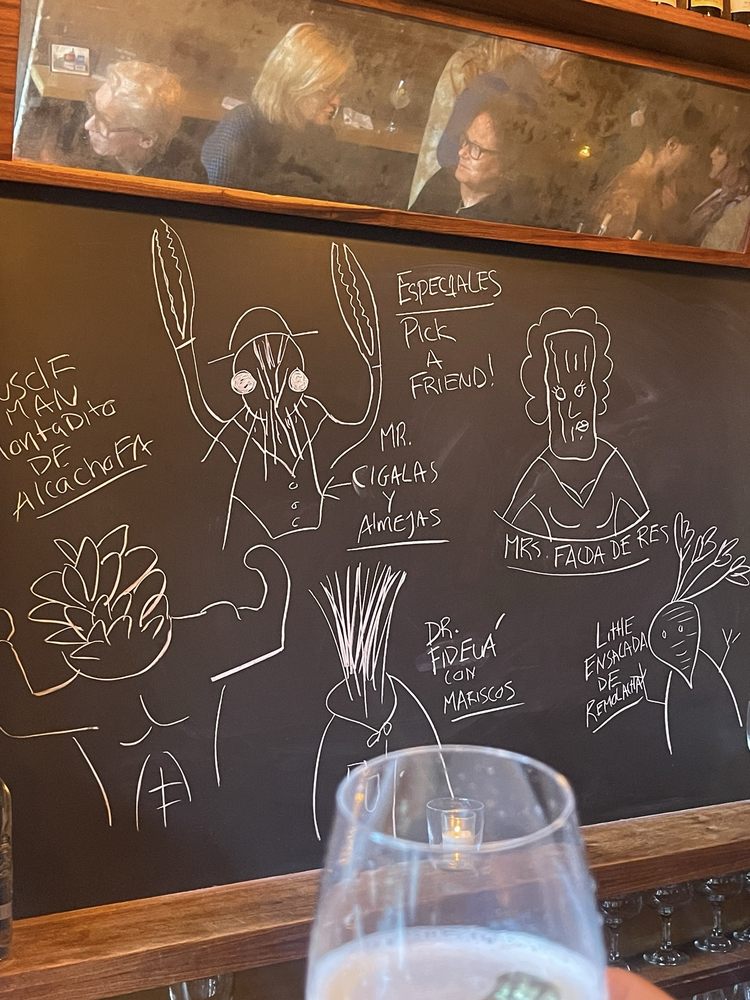 ESPECIALES
PICK
A
FRIEND!
MAN
DE
AlcachoFA
MR.
CIGALAS
Y
AlMEJAS
MRS. FALDA DE RES
DR.
FIDEUÁ
CON
MARISCOS
LittlE
ENSALADA
DE
REMOLACHA